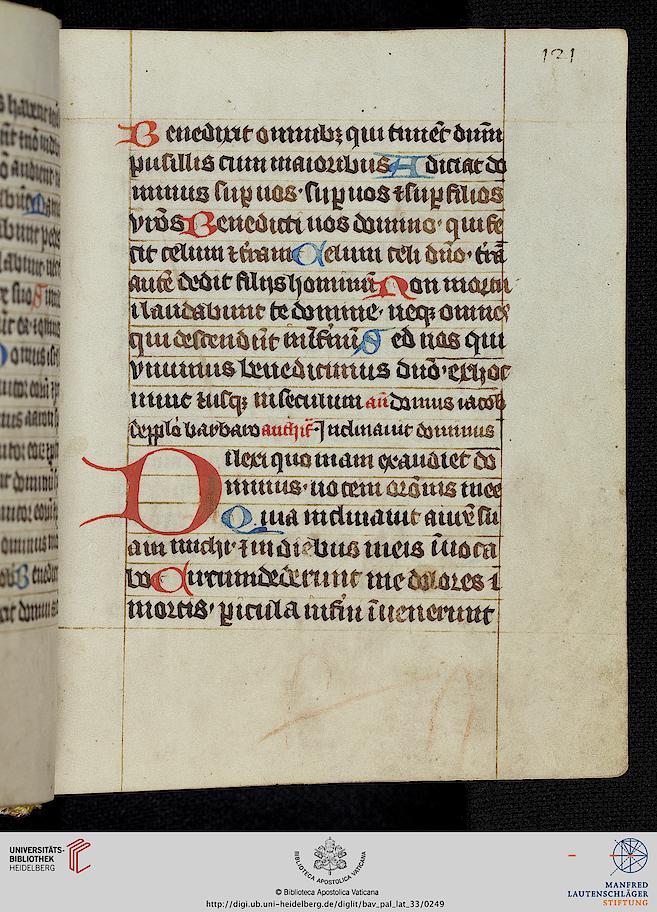 121
Benedixit omnibꝫ qui timēt dūm
pusillis cum maioribus Adiciat do
minus suꝑ uos· suꝑ uos ⁊ suꝑ filios
vr̄os Benedicti uos domino· qui fe
cit celum ⁊ t̄ram Celum celi dn̄o· t̄rā
autē dedit filijs hominū Non mortu
i laudabunt te domine· neqꝫ omnes
qui descendūt in īfnū Sed nos qui
viuimus benedicimus dn̄o· ex hoc
nunc ⁊ usqꝫ in seculum an̄ domus iacob
de pplo barbaro Inclinauit dominus
Dilexi quoniam exaudiet do
minus· uocem or̄onis mee
Quia inclinauit aurē su
am michi· ⁊ in diebus meis īuoca
bo Circumdederunt me dolores ī
mortis· ꝑicula infīn īuenerunt
UNIVERSITÄTS-
BIBLIOTHEK
HEIDELBERG
BIBLIOTECA APOSTOLICA VATICANA
© Biblioteca Apostolica Vaticana
http://digi.ub.uni-heidelberg.de/diglit/bav_pal_lat_33/0249
MANFRED
LAUTENSCHLÄGER
STIFTUNG